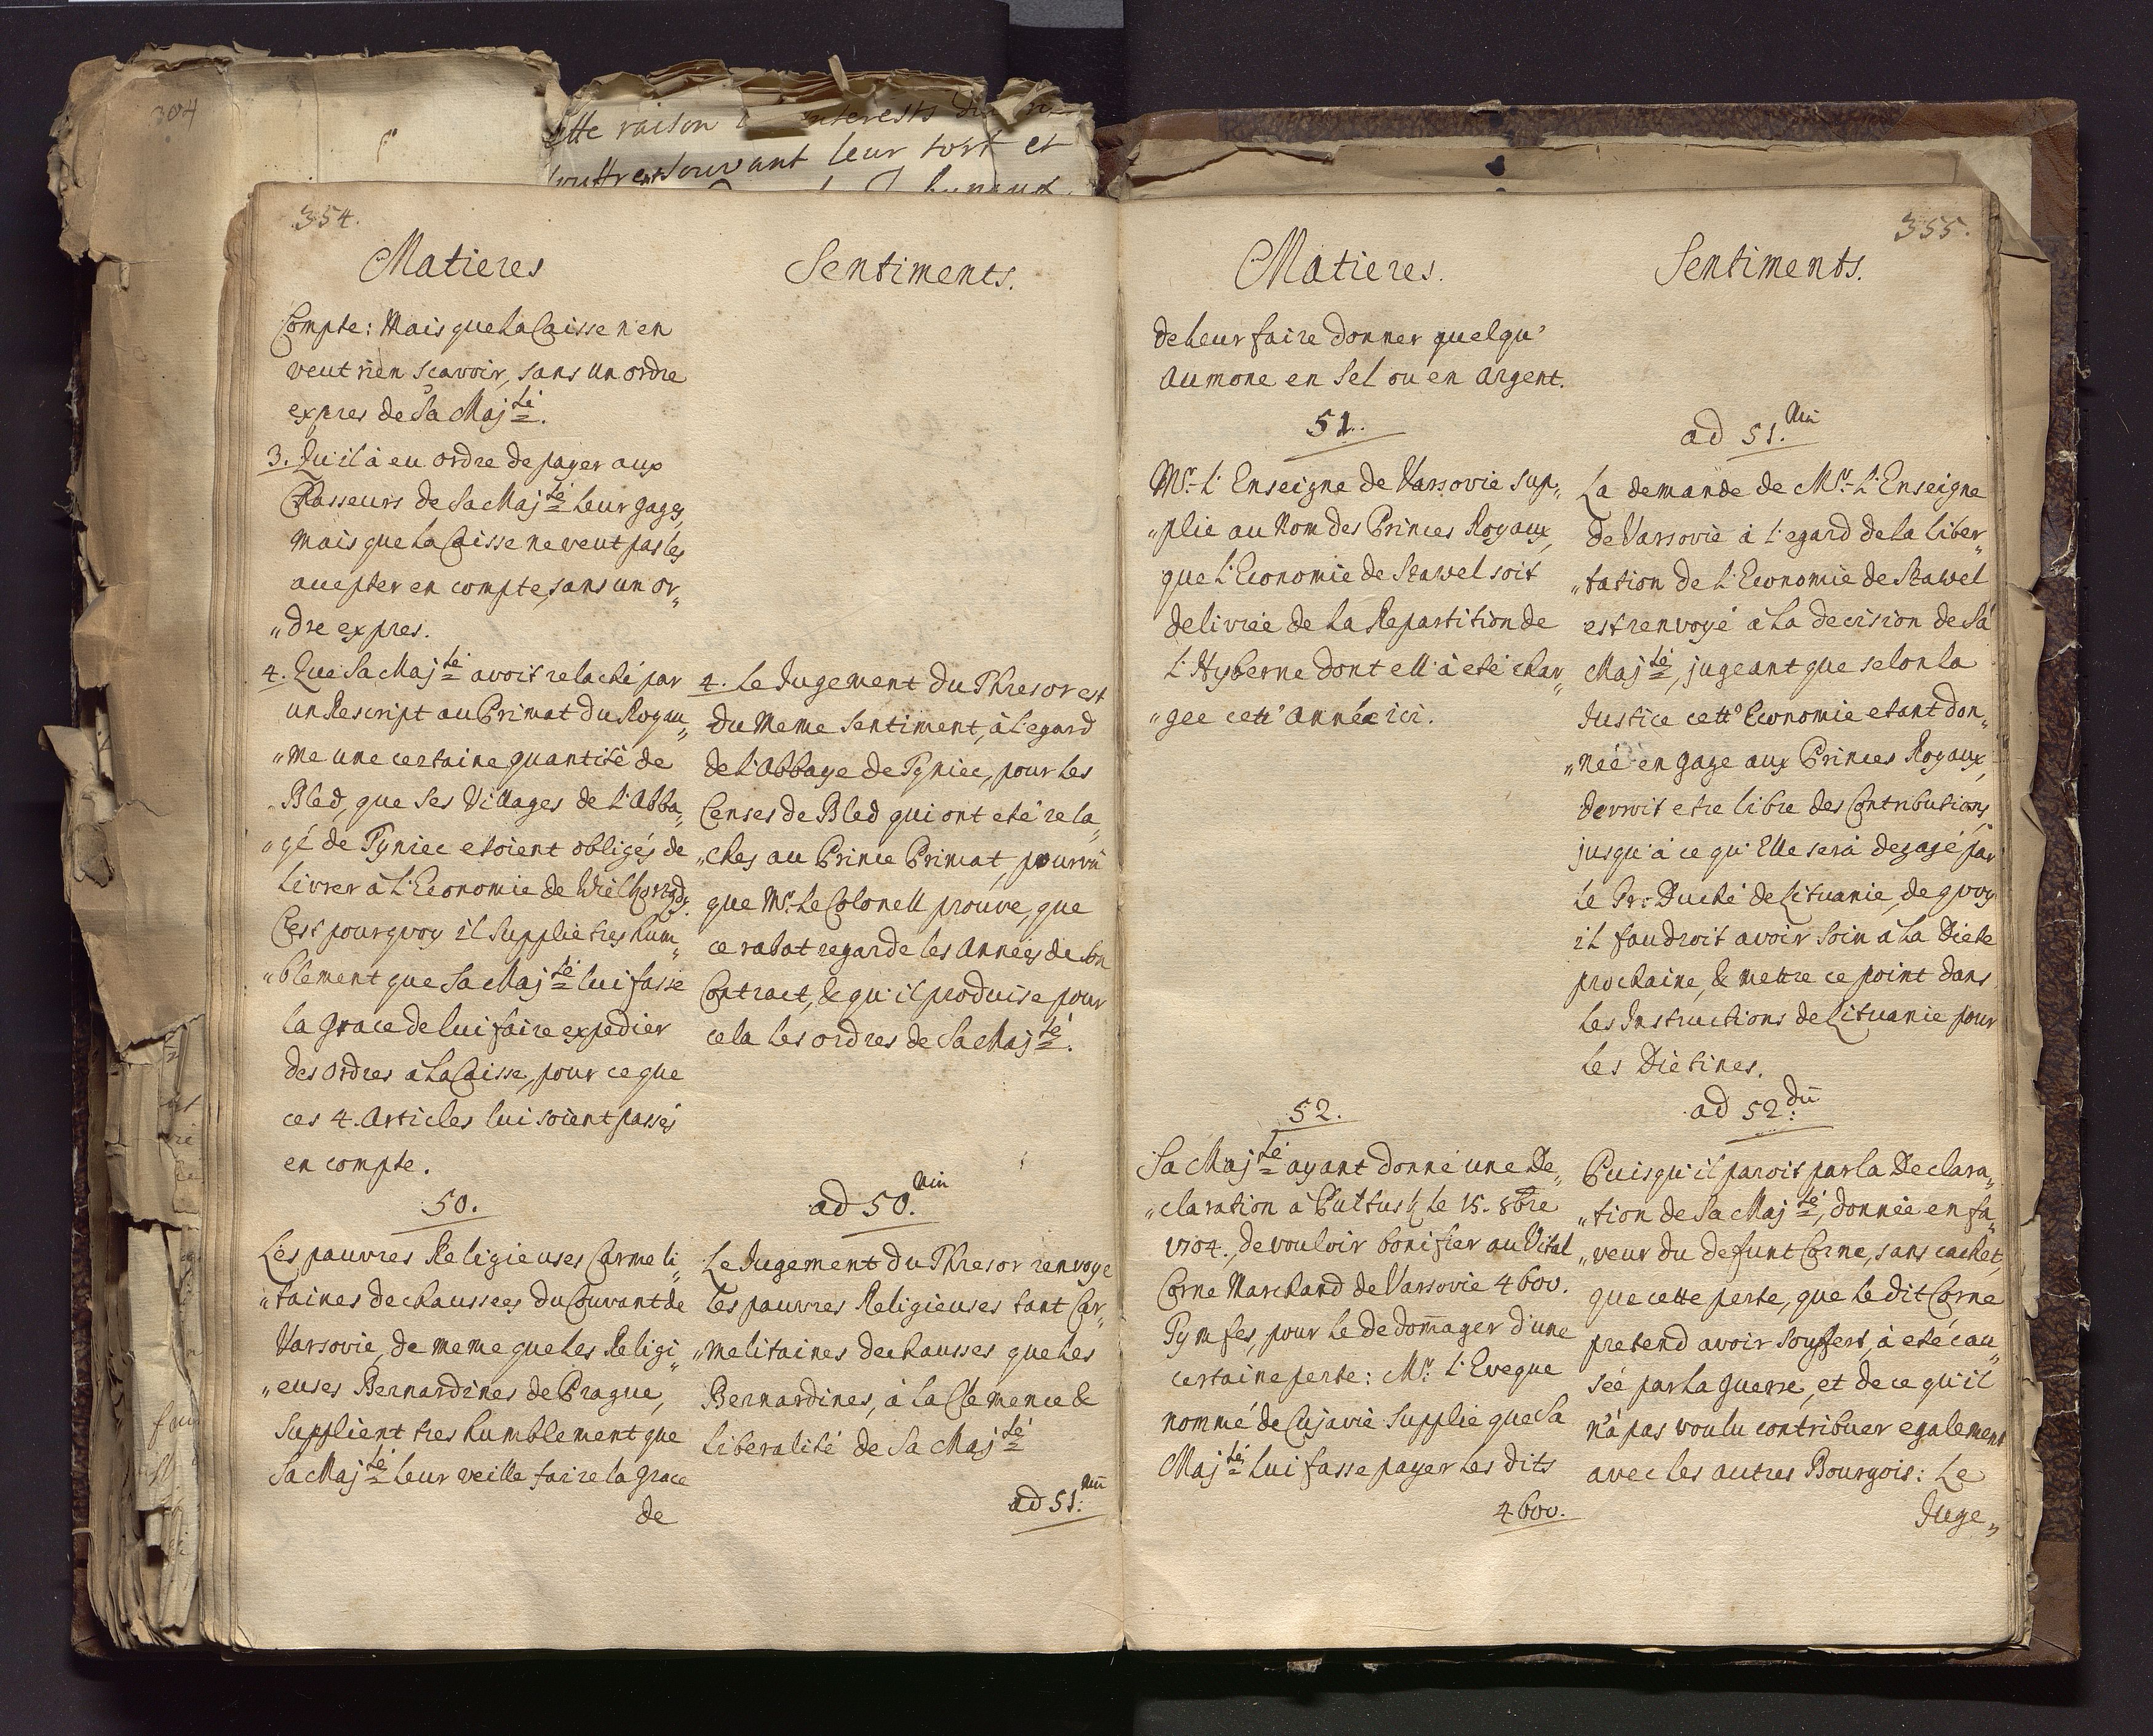 304
interests
souvant leur tort et
354.
Matieres
Compte: Mais que La Caisse n'en
veut rien sçavoir, sans un ordre
expres de Sa Maj.té.
3. Qu'il à eu ordre de payer aux
Chasseurs de Sa Maj.té leur gages,
Mais que La Caisse ne veut pas les
accepter en compte, sans un or„
„dre expres.
4. Que Sa Maj.té avoit relaché par
un Rescript au Primat du Royau„
„me une certaine quantité de
Bled, que Ses Villages de L'Abba„
„ÿe de Tyniec etoient obligés de
Livrer à L'Economie de
C'est pourquoy il Supplie tres hum„
„blement que Sa Maj.té lui fasse
la Grace de lui faire expedier
des ordres a La Caisse, pour ce que
ces 4. Articles lui soient passés
en compte.
50.
Les pauvres Religieuses Carmeli„
„taines dechaussees du Couvant de
Varsovie, de meme que les Religi„
„euses Bernardines de Prague,
Supplient tres humblement que
Sa Maj.té Leur veille faire la Grace
de
Sentiments.
4. Le Jugement du Thresor est
du Meme Sentiment, à L'egard
de L'Abbaye de Tyniec, pour Les
Censes de Bled qui ont eté rela„
„ches au Prince Primat, pourvû
que Mr. Le Colonell prouve, que
ce rabat regarde les Années de Son
Contract, & qu'il produise pour
cela Les ordres de Sa Maj.té.
ad 50.mũ
Le Jugement du Thresor renvoye
Les pauvres Religieuses tant Car„
„melitaines dechausses que Les
Bernardines, à la Clemence &
Liberalité de Sa Maj.té
ad 51.mũ
355.
Matieres.
de Leur faire donner quelqu'
Aumone en Sel ou en Argent.
51.
Mr. L'Enseigne de Varsovie Sup„
„plie au Nom des Princes Royaux,
que L'Economie de Szawel soit
delivrée de La Repartition de
L'Hyberne dont ell' à eté char„
„gee cett' Année ici.
52.
Sa Maj.té ayant donné une De„
„claration à Pultusk Le 15. 8bre
1704., de vouloir bonifier au Vital
Corne Marchand de Varsovie 4600.
Tymfes, pour Le dedomager d'une
certaine perte: Mr. L'Eveque
nommé de Cujavie Supplie que Sa
Maj.té Lui fasse payer Les dits
4600.
Sentiments.
ad 51.mũ
La demande de Mr. L'Enseigne
de Varsovie à L'egard de La Liber„
„tation de L'Economie de Szawel
est renvoyé à La decision de Sa
Maj.té, jugeant que selon La
Justice cett' Economie etant don„
„née en gage aux Princes Royaux,
devroit etre libre des Contributions,
jusqu'à ce qu'Elle sera degagé par
Le Gr: Duché de Lituanie, de quoy
il faudroit avoir Soin à La Diete
prochaine, & mettre ce point dans
Les Instructions de Lituanie pour
Les Diétines.
ad 52.dũ
Puisqu'il paroit par La Declara„
„tion de Sa Maj.té, donnée en fa„
„veur du defunt Corne, sans cachet,
que cette perte, que Le dit Corne
pretend avoir Souffert, à eté cau„
sée par La Guerre, et de ce qu'il
n'à pas voulu contribuer egalement
avec Les Autres Bourgois: Le
Juge„